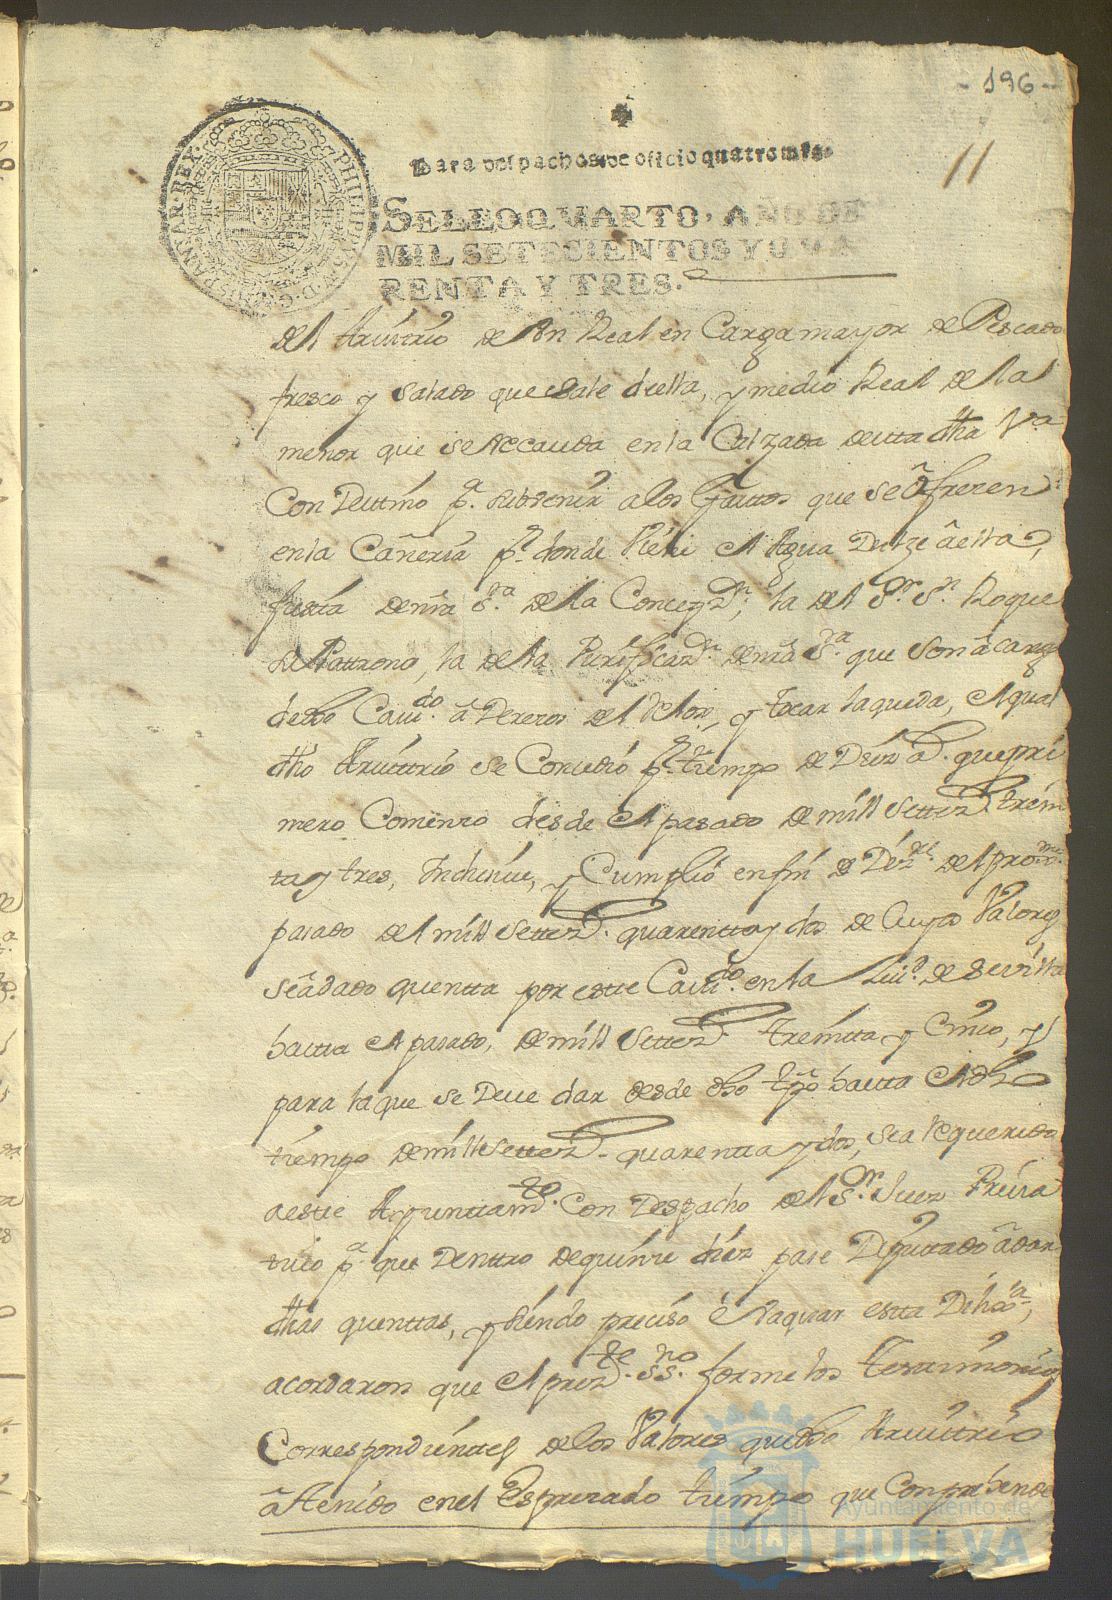 - 196 -
11
Para despachos de oficio quatro mrs.
SELLO QVARTO, AÑO DE
MIL SETECIENTOS Y QVA
RENTA Y TRES.
PHILIPPUS V D G HISPANIAR REX
del Aruitrio de Un Real en Carga mayor de Pescado
fresco y salado que sale de ella, y medio Real de la
menor que se Reccauda en la Calzada de esta dha Va
Con Destino pa. subvenir a los Gastos que se ofreren
en la Cañeria pr. donde Viene el Agua Dulze a ella,
fiesta de nra Sra. de la Concepzn., la del Sr. Sn. Roque
su Pattrono, la de la Purificazn. de nra Sra. que son a cargo
de dho Cauido. aderezos del Relox, y tocar la queda, el qual
dho Aruitrio se Conzedio pr. tiempo de Diez as. que pri
mero Comenzo desde el pasado de mill settezs. trein
ta y tres, Inclusiue, y Cumplio en fin de Dizre. del proxmo.
pasado de mill settezs. quarentta y dos de Cuyos Valores
se a dado quentta por este Cauido. en la Ciud. de Sevilla
hasta el pasado, de mill settezs. treintta y Cinco, y
para la que se Deve dar desde dho tpo. hasta el dho
tiempo de mill settezs. quarentta y dos, se a Requerido
a este Ayunttamto. Con Despacho del Sr. Juez Priva
tivo pa. que Dentro de quinze dias pase Diputtado a dar
dhas quenttas, y siendo preciso evaquar esta Dilixa.,
acordaron que el prezte. ssno. forme los Testimonios
Correspondientes de los Valores que dho Aruitrio
a tenido en el Espresado tiempo que Comprehende
Ayuntamiento de
HUELVA